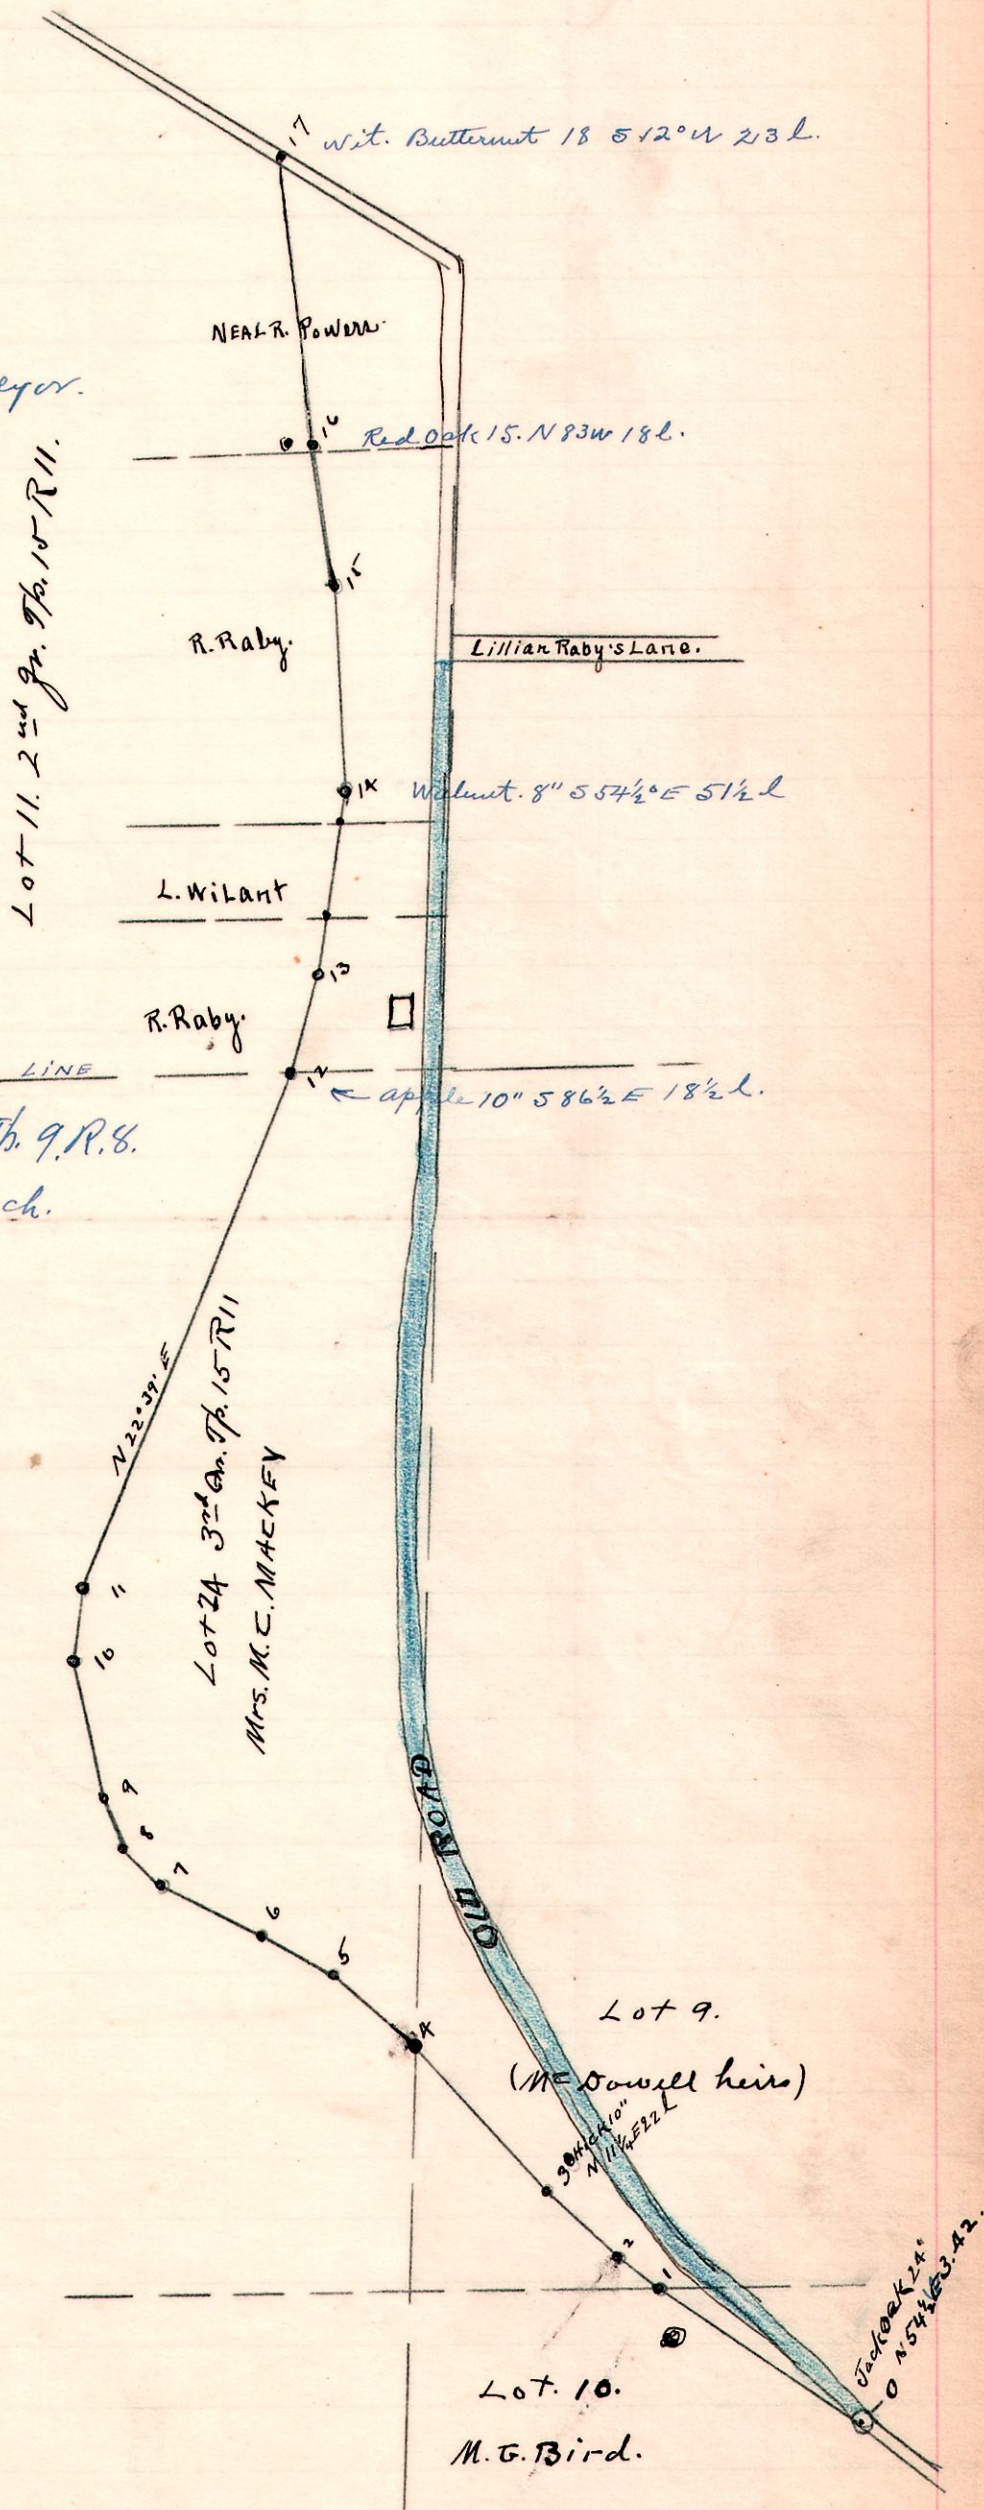 17
Wit. Butternut 18 S 12° W 23 l.
NEAL R. Powers.
eyor.
16
Red Oak 15. N 83 W 18 l.
Lot 11. 2nd qr. Tp. 15 R 11.
15
R. Raby.
Lillian Raby's Lane.
14
Walnut. 8" S 54½° E 51½ l
L. Wilant
13
R. Raby.
LINE
12
← apple 10" S 86½ E 18½ l.
p. 9. R. 8.
ch.
N 22° 39' E
Lot 24 3rd Qr. Tp. 15 R 11
Mrs. M. C. MACKEY
11
10
9
8
7
6
5
OLD ROAD
4
Lot 9.
(Mc Dowell heirs)
3 Hick 10"
N 11¼ E 22 l
2
1
Jack Oak 24"
0 N 54½ E 3.42.
Lot. 10.
M. G. Bird.